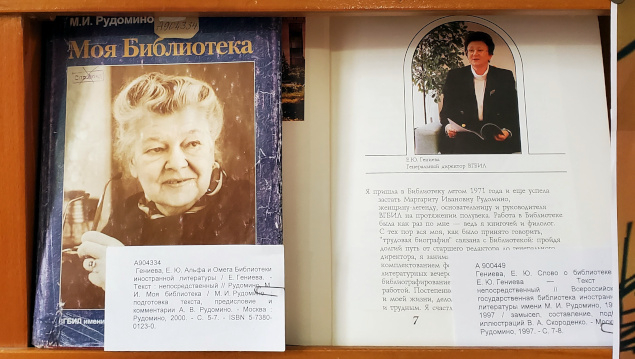 М.И. Рудомино
А904334
Моя Библиотека
ВГБИЛ имени
А904334
Гениева, Е. Ю. Альфа и Омега Библиотеки
иностранной литературы / Е. Гениева. -
Текст непосредственный // Рудомино, М.
И. Моя библиотека / М. И. Рудомино
подготовка текста, предисловие и
комментарии А. В. Рудомино. - Москва
Рудомино, 2000. - С. 5-7. - ISBN 5-7380-
0123-0.
Е.Ю. Гениева
Генеральный директор ВГБИЛ
Я пришла в Библиотеку летом 1971 года и еще успела
застать Маргариту Ивановну Рудомино,
женщину-легенду, основательницу и руководителя
ВГБИЛ на протяжении полувека. Работа в Библиотеке
была как раз по мне — ведь я книгочей и филолог.
С тех пор вся моя, как было принято говорить,
"трудовая биография" связана с Библиотекой: пройдя
долгий путь от старшего редактора до генерального
директора, я занима
комплектованием ф
литературных вечеро
библиографирование
работой. Постепенно
в моей жизни, дело
и трудным. Я счаст
7
А 900449
Гениева, Е. Ю. Слово о библиотеке
Е. Ю. Гениева — Текст
непосредственный // Всероссийска
государственная библиотека иностран
литературы имени М. И. Рудомино, 19
1997 / замысел, составление, под
иллюстраций В. А. Скороденко. - Мос
Рудомино, 1997. - С. 7-8.